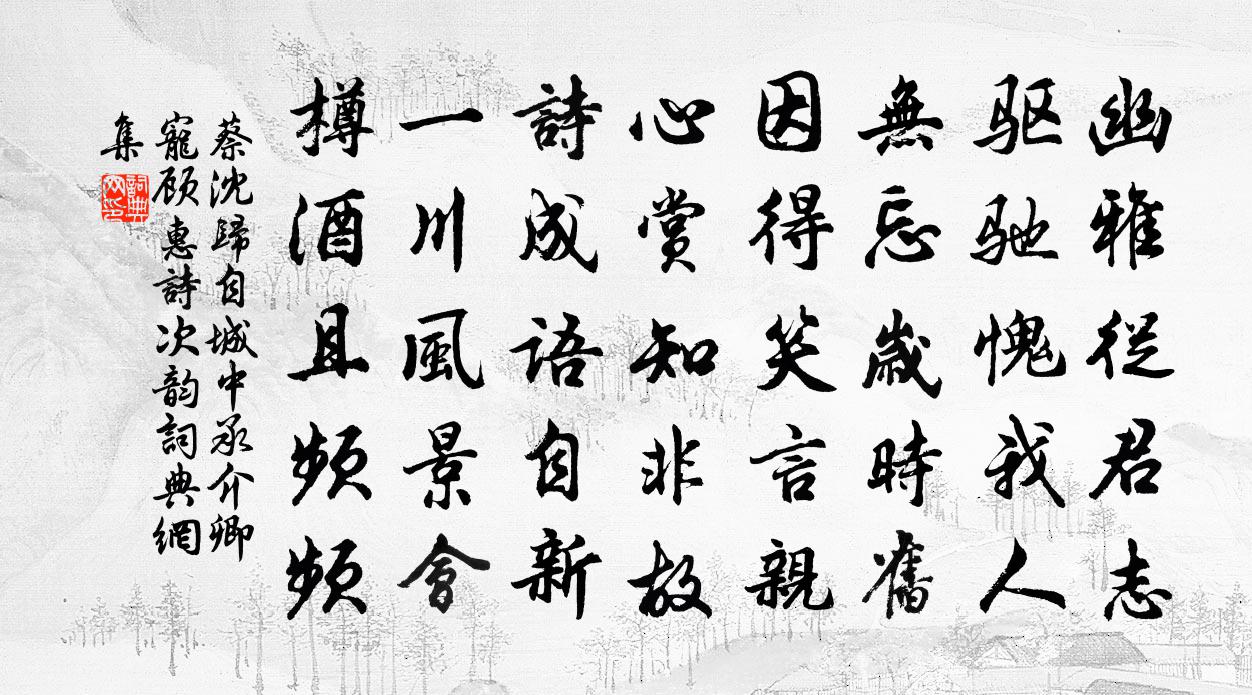 幽雅從君志
驱驰愧我人
無忘歲時舊
因得笑言親
心賞知非故
詩成语自新
一川風景會
樽酒且频频
蔡沈歸自城中承介卿
寵顾惠詩次韵詞典網
集
詞典網印